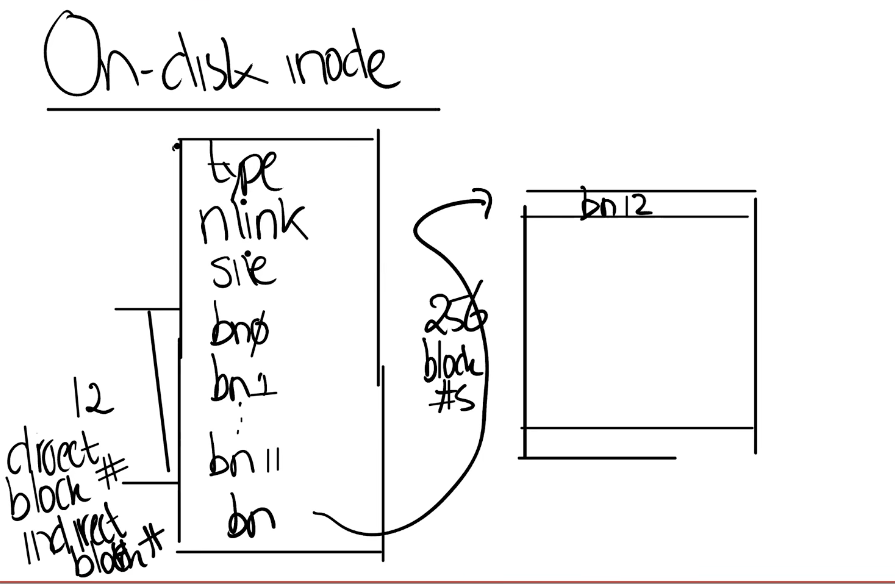 On-disk inode
type
nlink
size
bn0
bn1
bn11
bn
12
direct
block #
indirect
block #
256
block
#s
bn12